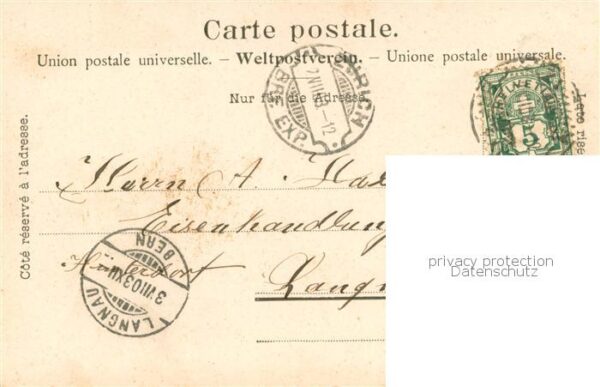 Carte postale.
Union postale universelle. – Weltpostverein. – Unione postale universale.
Nur für die Adresse.
Côté réservé à l'adresse.
Lato rise
ZÜRICH
BRF. EXP.
5
Herrn A.
Eisenhandlung
Hinterdorf
Langn
LANGNAU
BERN
privacy protection
Datenschutz